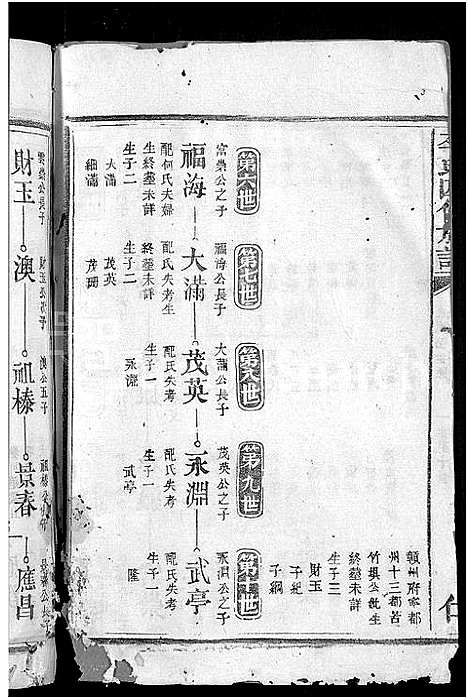 贛州府寧都
州十三都苦
竹壩公就生
終塟未詳
生子三
財玉
子紀
子綱
第六世
富榮公之子
福海
配何氏夫婦
生終塟未詳
生子二
大滿
細滿
第七世
福海公長子
大滿
配氏失考生
終塟未詳
生子二
茂英
茂珊
第八世
大滿公長子
茂英
配氏失考
生子一
永淵
第九世
茂英公之子
永淵
配氏失考
生子一
武亭
第十世
永淵公之子
武亭
配氏失考
生子一
隆
雲榮公長子
財玉
財玉公次子
澳
澳公五子
祖榛
祖榛公
景春
景春公長子
應昌